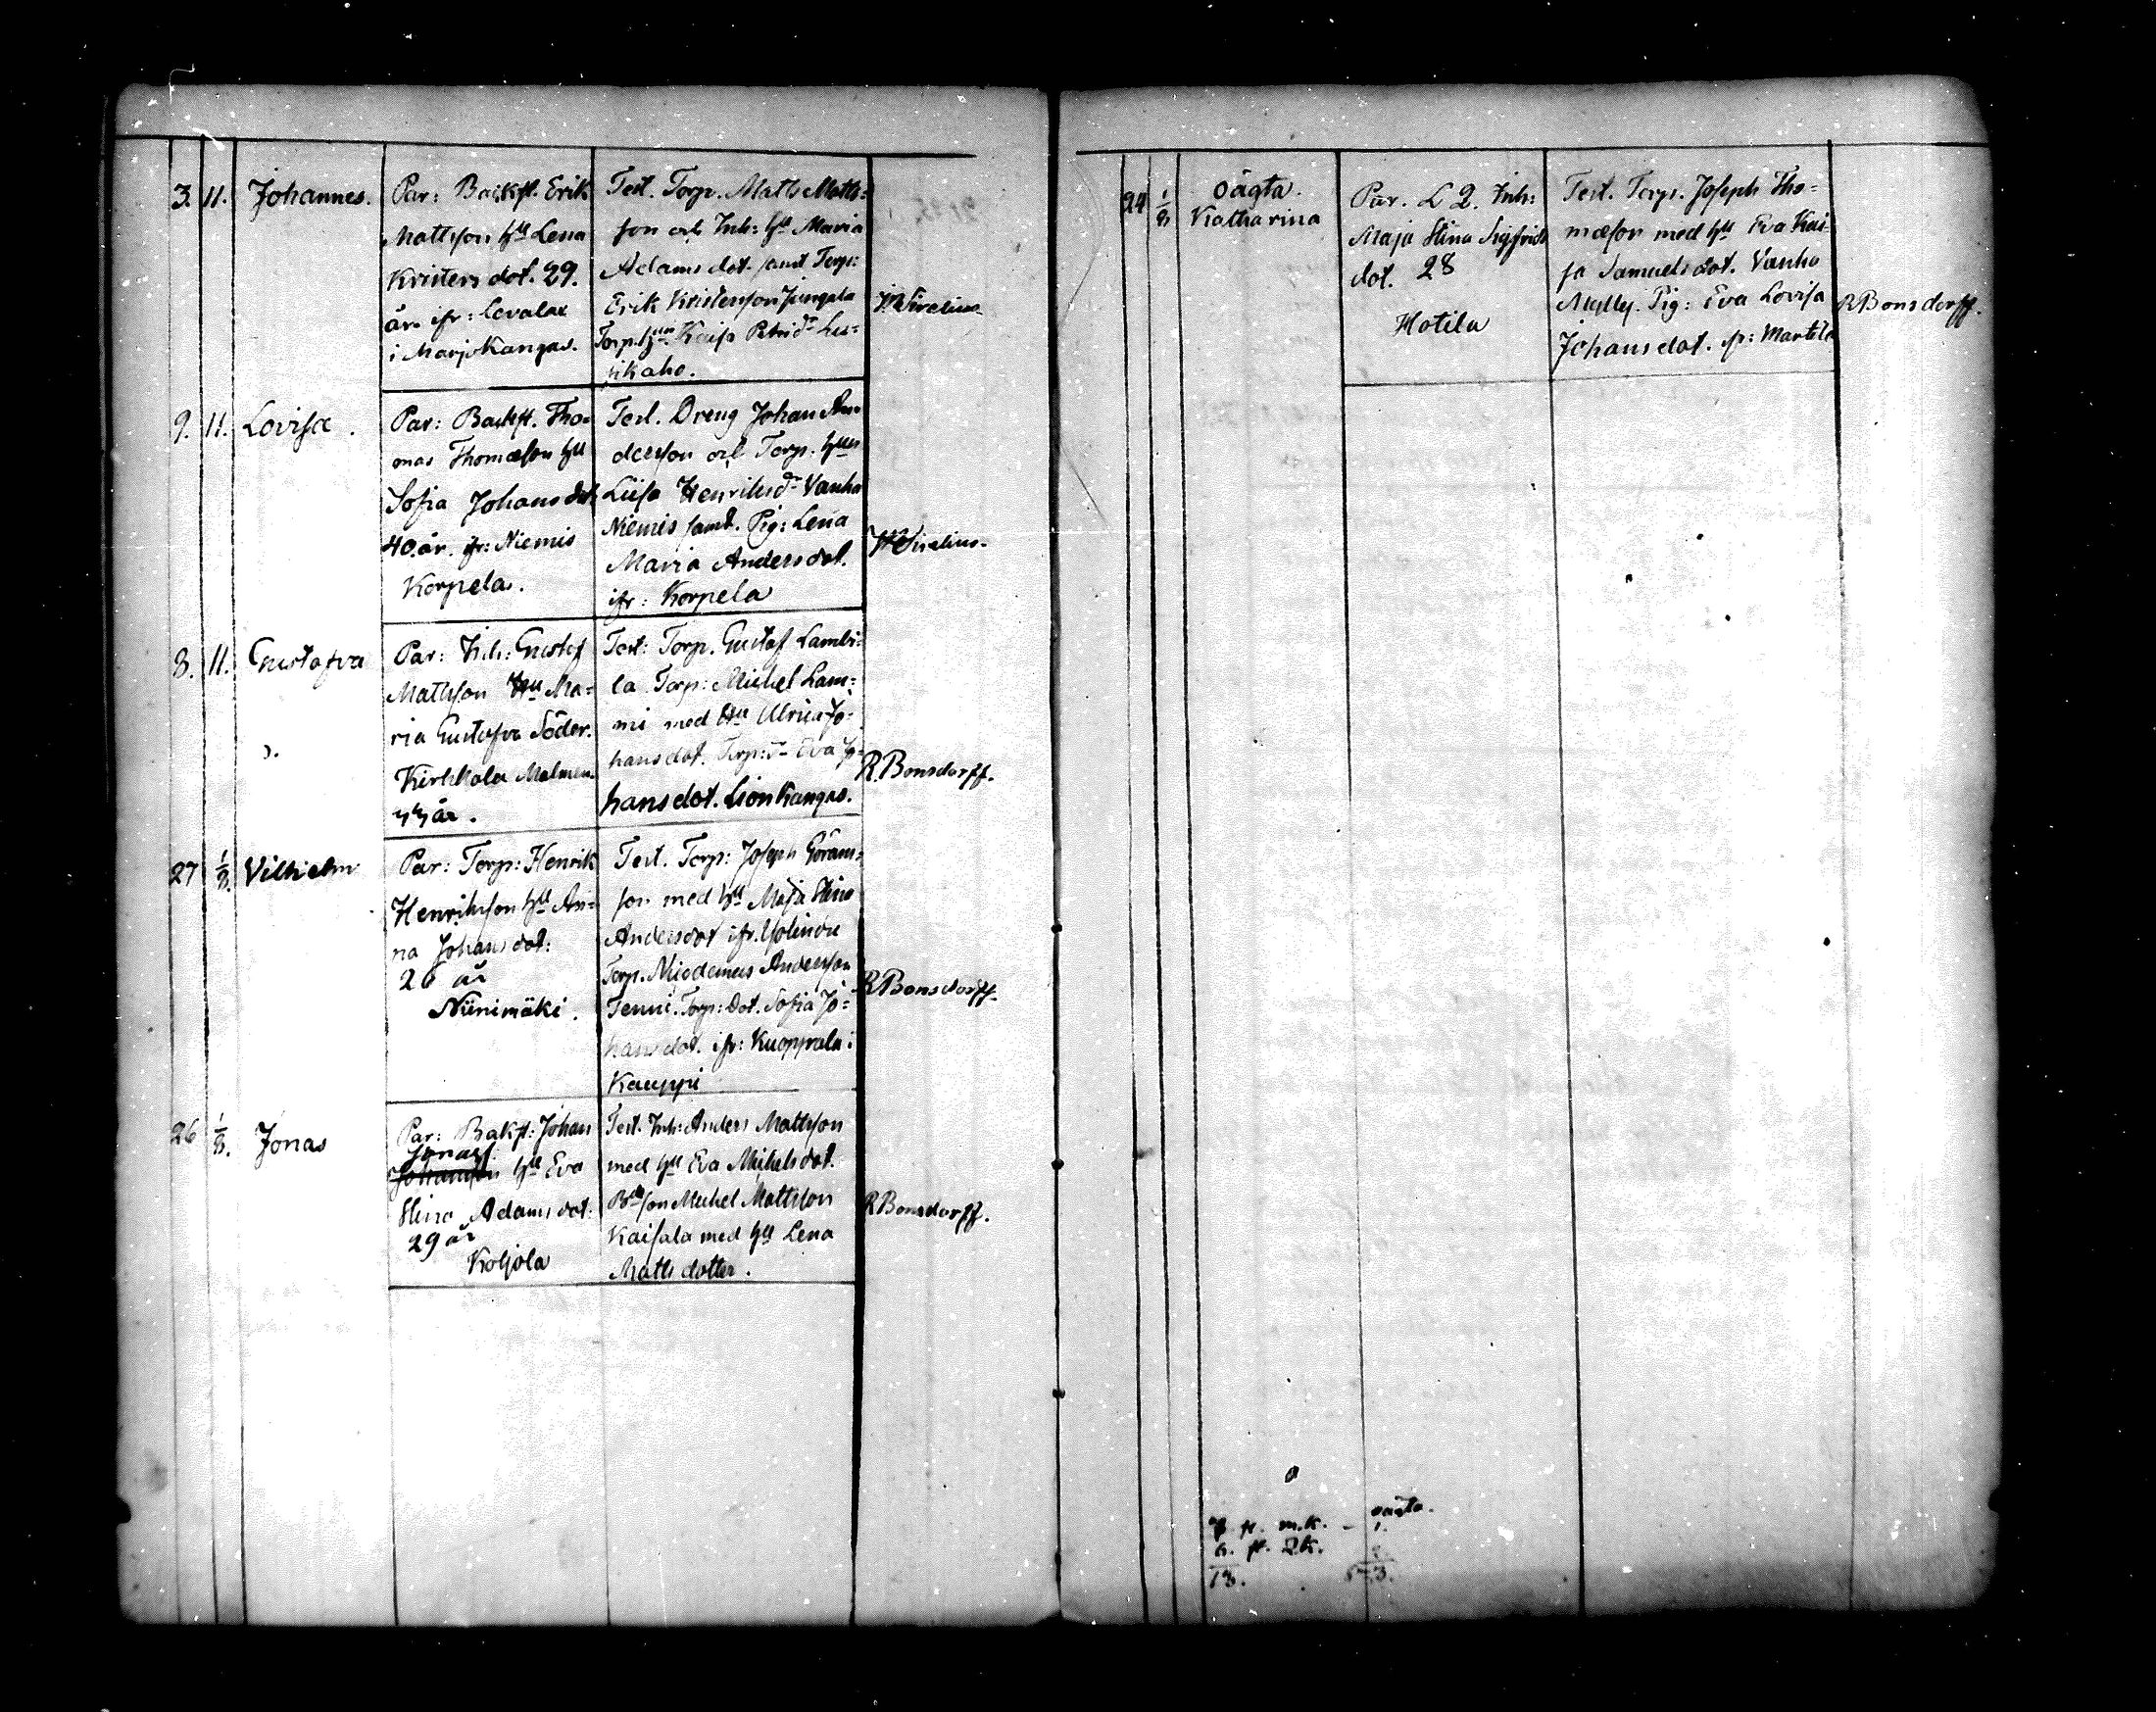 3. 11. Johannes.
Par: Backst. Erik
Mattsson hu Lena
Kristersdot. 29.
år. ifr: Lovalax
i Marjokangas.
Test. Torp. Matts Matts=
son och Inh: hu Maria
Adamsdot. samt Torp:
Erik Kristersson Jungala
Torp. hun Kaisa
sikaho.
Sirelius
9. 11. Lovisa.
Par: Backst. Tho-
mas Thomasson hu
Sofia Johansdot.
40. år. ifr: Niemis
Korpela.
Test. Dreng Johan An-
dersson och Torp. hun
Liisa Henriksdr Vanha
Niemis samt. Pig: Lena
Maria Andersdot.
ifr: Korpela
Sirelius
8. 11. Gustafva
Par: Inh: Gustaf
Mattsson Hu Ma=
ria Gustafva Söder.
Kirkkola Malmen.
år.
Test: Torp. Gustaf Lambi=
la Torp: Michel Lam=
mi med Hu Ulrica Jo=
hansdot. Torp: Eva Jo=
hansdot. Lionkangas.
R. Bonsdorff.
27 1/8. Vilhelm
Par: Torp: Henrik
Henriksson hu An=
na Johansdot:
26 år
Niinimäki.
Test. Torp: Joseph Görans=
son med hu Maja Stina
Andersdot ifr.
Torp. Nicodemus Andersson
Tenni. Torp: Dot. Sofia Jo=
hansdot. ifr: Kuoppala i
Kauppi
R Bonsdorff.
26 1/8. Jonas
Par: Bakst: Johan
Jonass.
Johansson hu Eva
Stina Adamsdot:
29 år
Koljola
Test. Inh: Anders Mattsson
med hu Eva Michelsdot.
Bdeson Michel Mattsson
Kaisala med hu Lena
Mattsdotter.
R Bonsdorff.
24 1/8 oägta.
Katharina
Par. L 2. Inh:
Maja Stina Sigfrids
dot. 28
Hotila
Test. Torp. Joseph Tho=
masson med hu Eva Kai-
sa Samuelsdot. Vanha
Mylly. Pig: Eva Lovisa
Johansdot. ifr: Martila
R Bonsdorff.
oägta.
m.k. - 1.
6. 2k.
13.